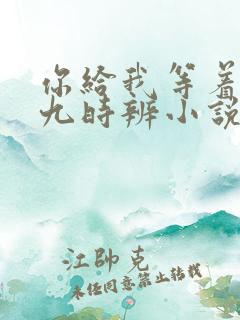 你给我等着
九時辨小説
江帥克
未任同意禁止转载